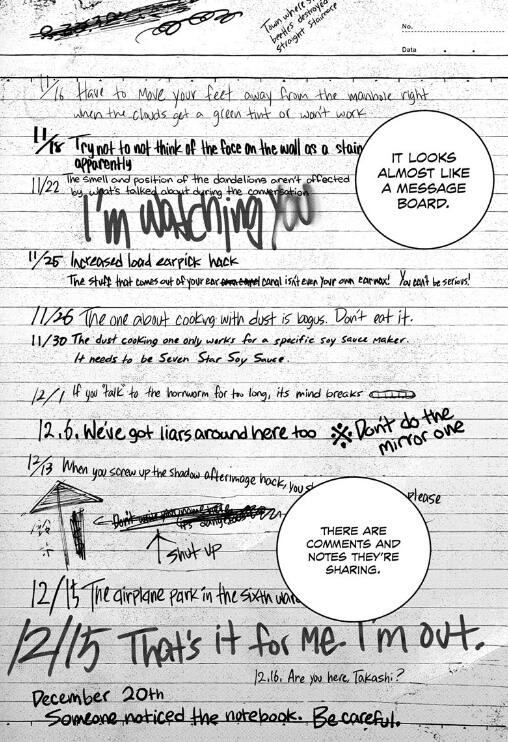 Town where s
beetles destroyed
straight staircase
No.
Data
11/16 Have to move your feet away from the manhole right
when the clouds get a green tint or won't work
11/18 Try not to not think of the face on the wall as a stain
apparently
11/22 The smell and position of the dandelions aren't affected
by what's talked about during the conversation
I'm watching YOU
IT LOOKS
ALMOST LIKE
A MESSAGE
BOARD.
11/25 Increased load earpick hack
The stuff that comes out of your ear canal isn't even your own earwax! You can't be serious!
11/26 The one about cooking with dust is bogus. Don't eat it.
11/30 The dust cooking one only works for a specific soy sauce maker.
It needs to be Seven Star Soy Sauce.
12/1 If you "talk" to the hornworm for too long, its mind breaks
12.6. We've got liars around here too ※ Don't do the
mirror one
12/13 When you screw up the shadow afterimage hack, you s
please
Don't write your name here
it's dangerous
shut up
THERE ARE
COMMENTS AND
NOTES THEY'RE
SHARING.
12/15 The airplane park in the sixth ward
12/15 That's it for me. I'm out.
12.16. Are you here, Takashi?
December 20th
Someone noticed the notebook. Be careful.